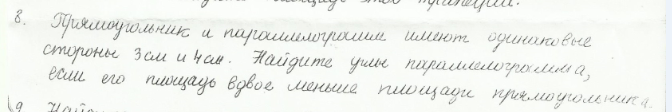 площадь этой трапеции.
8. Прямоугольник и параллелограмм имеют одинаковые
стороны 3 см и 4 см. Найдите углы параллелограмма,
если его площадь вдвое меньше площади прямоугольника.
9 Найд